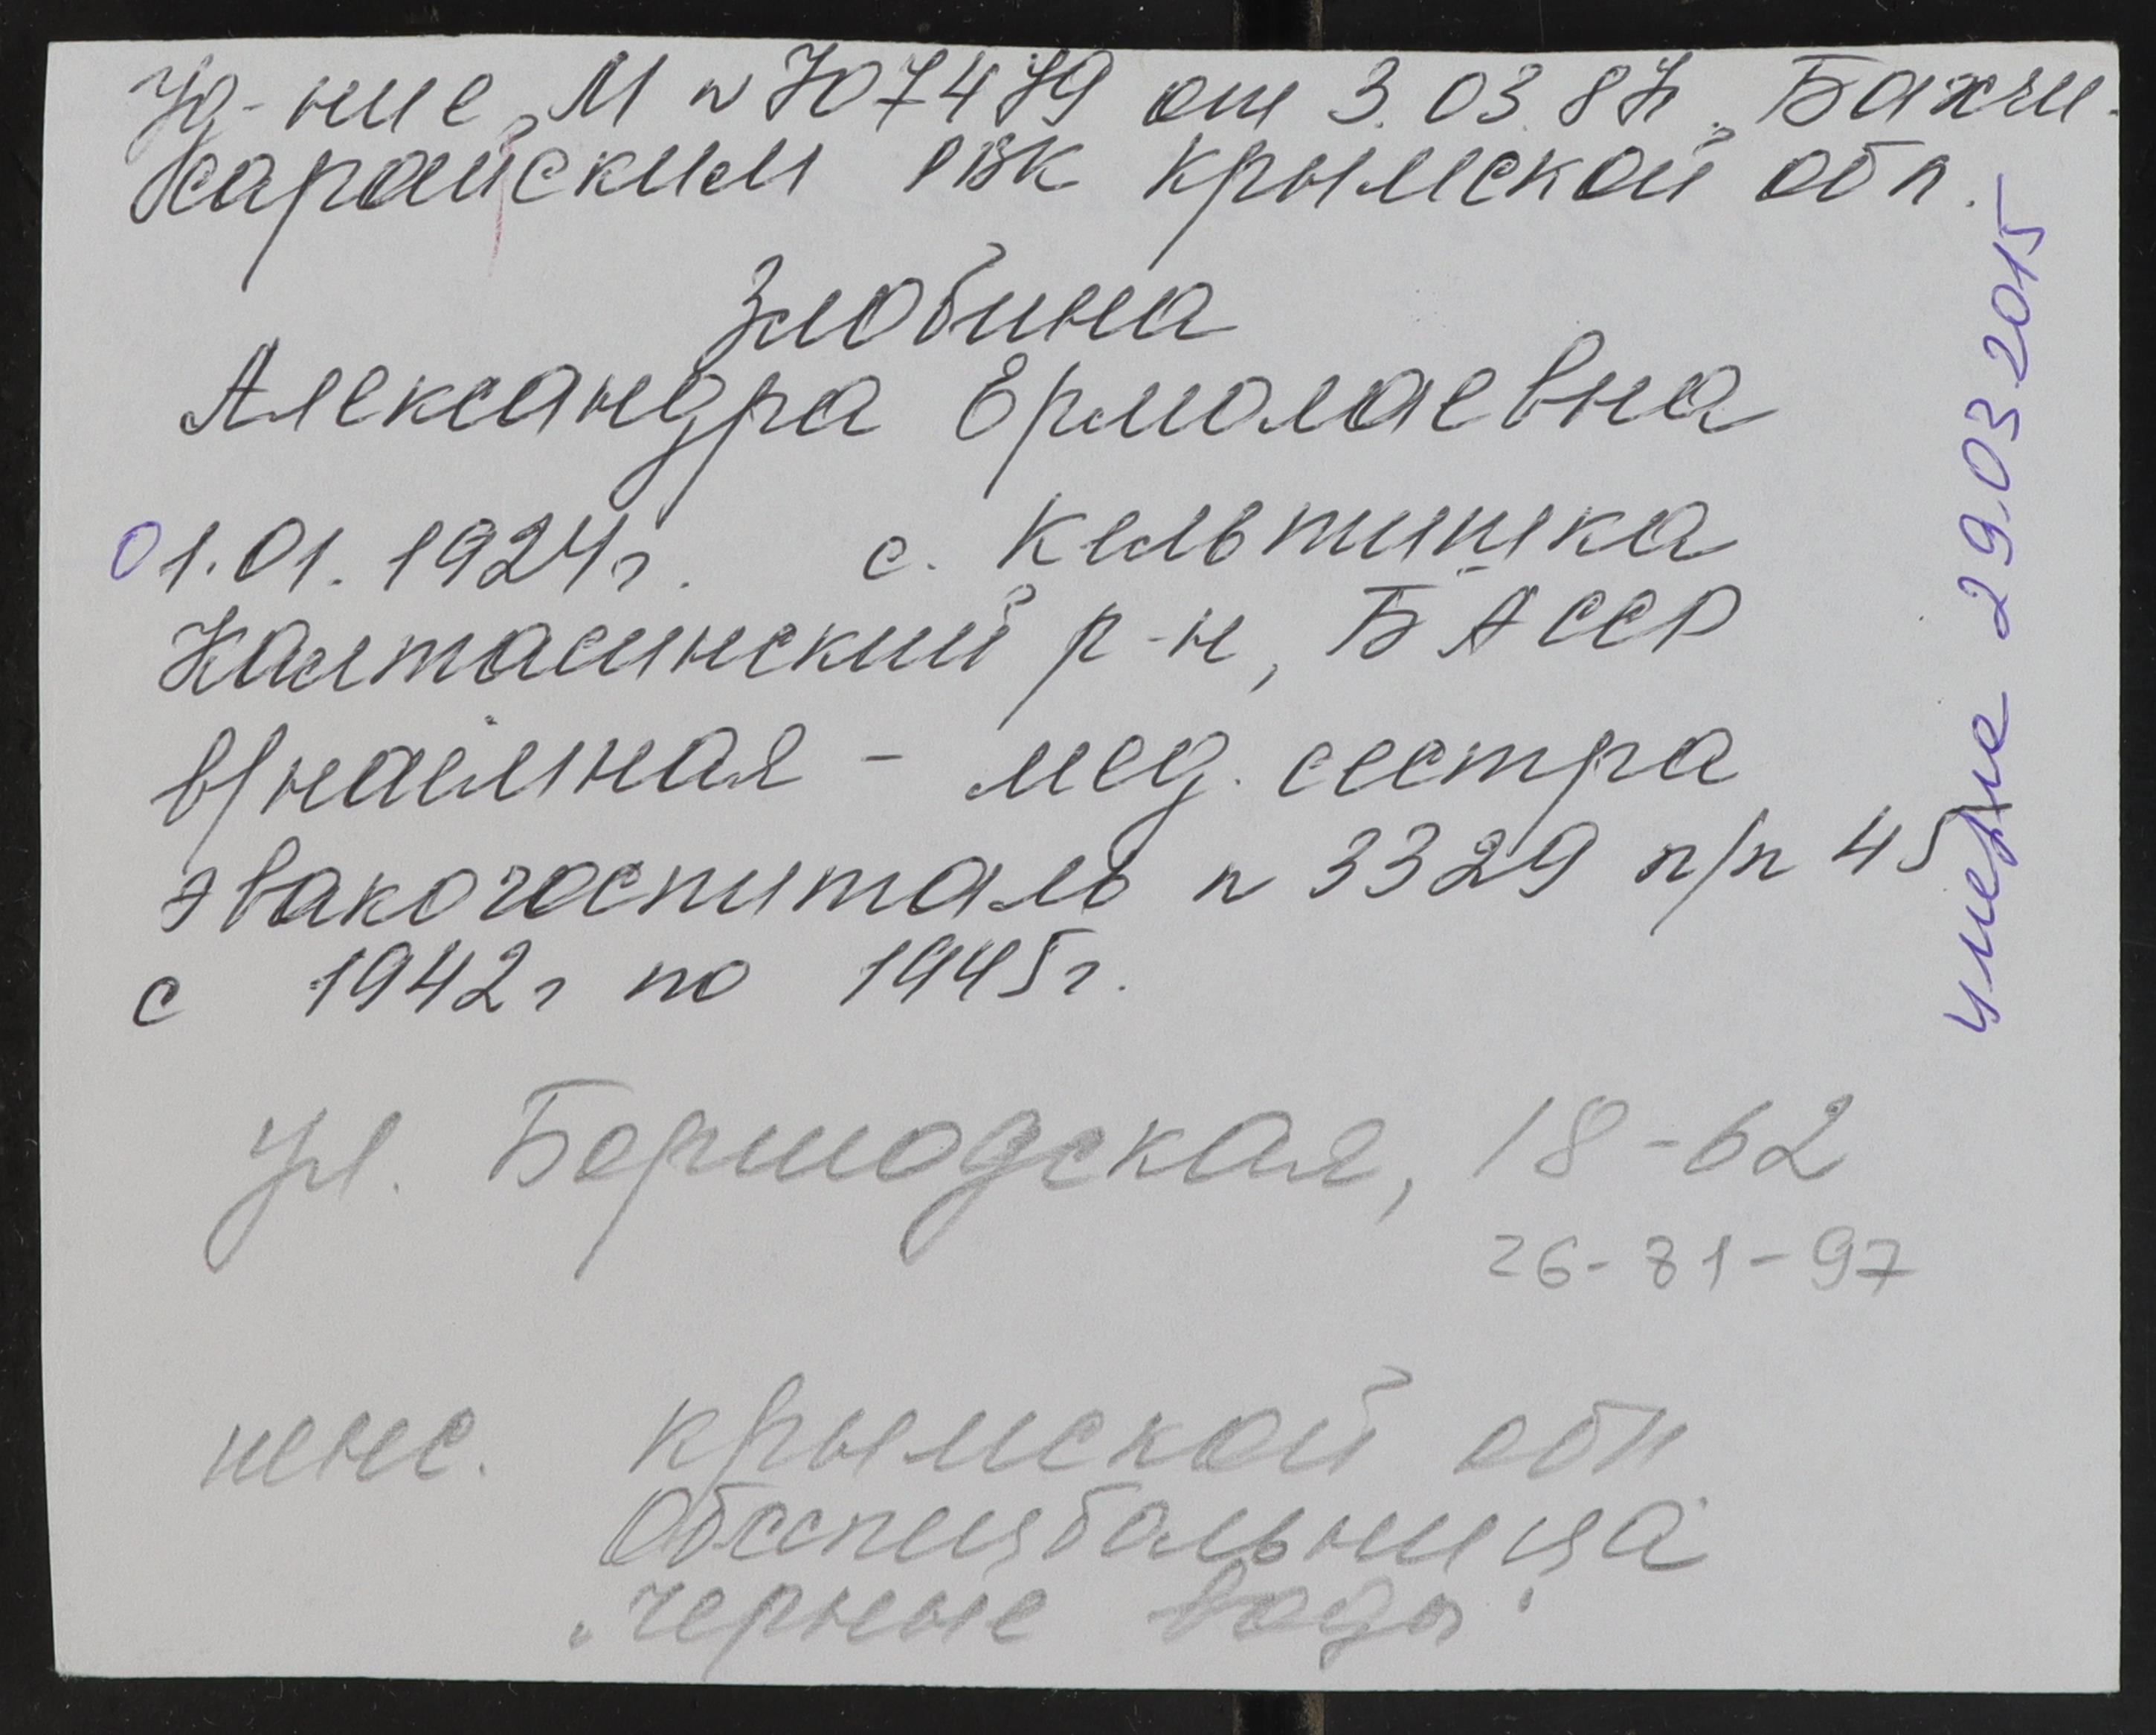 Уд-ние М № 707479 от 3.03.87г. Бахчи-
сарайским РВК Крымской обл.
Злобина
Александра Ермолаевна
01.01.1924г. с. Кельтишка
Калтасинский р-н, БАССР
в/наёмная - мед. сестра
эвакогоспиталь № 3329 п/п 45
с 1942г по 1945г.
ул. Бершодская, 18-62
26-81-97
пенс. Крымской обл
Обсспецбольница
"Черные воды"
умерла 29.03.2015